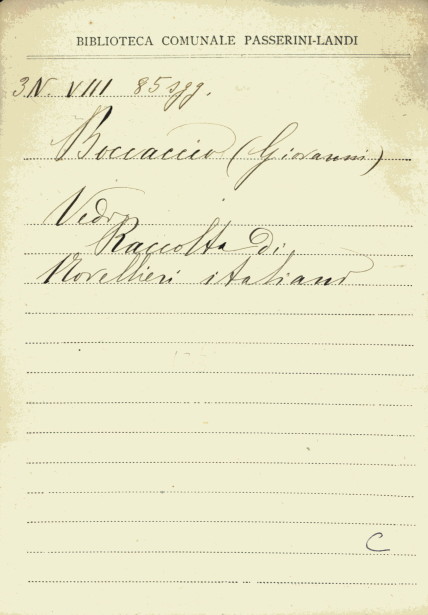 BIBLIOTECA COMUNALE PASSERINI-LANDI
3N. VIII 85 sgg.
Boccaccio (Giovanni)
Vedi
Raccolta di
Novellieri italiani
C